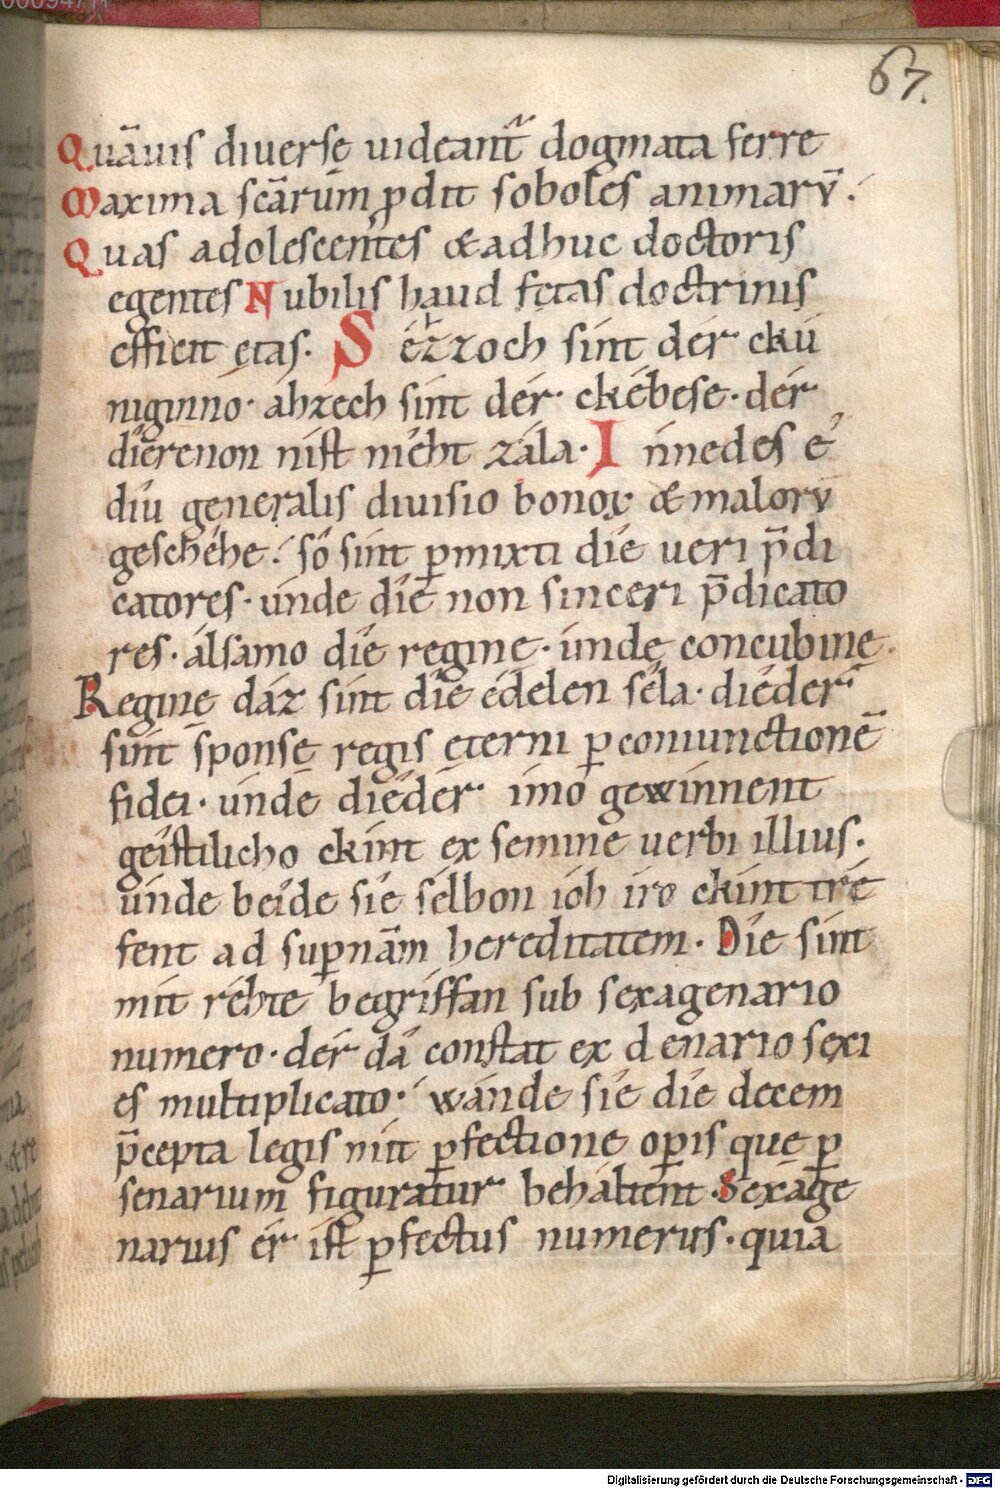 67.
Quāuis diuerse uideant᷑ dogmata ferre
Maxima scārum ꝓdit soboles animarū.
Quas adolescentes & adhuc doctoris
egentes Nubilis haud fętas doctrinis
efficit ętas. Séhzoch sint dér ckú
niginno· áhzech sint dér ckébese· dér
diérenon nist niéht zála· Innedes é
díu generalis diuisio bonoꝝ & maloꝝ
geschéhe. só sint ꝑmixti díe ueri p̄di
catores· únde díe non sinceri p̄dicato
res· álsamo díe reginę· únde concubinę.
Reginę dáz sint díe édelen séla· diédér
sint sponsę regis ęterni ꝑ coniunctionē
fidei· únde diédér imo gewinnent
geistilicho ckint ex semine uerbi illius.
únde beide síe sélbon ióh iro ckint tré
fent ad suꝑnām hereditatem. Díe sint
mit réhte begriffan sub sexagenario
numero· dér dá constat ex denario sexi
es multiplicato· wánde síe díe decem
p̄cepta legis mit ꝑfectione oꝑis quę ꝑ
senarium figuratur beháltent. Sexáge
narius ér ist ꝑfectus numerus· quia
Digitalisierung gefördert durch die Deutsche Forschungsgemeinschaft - DFG